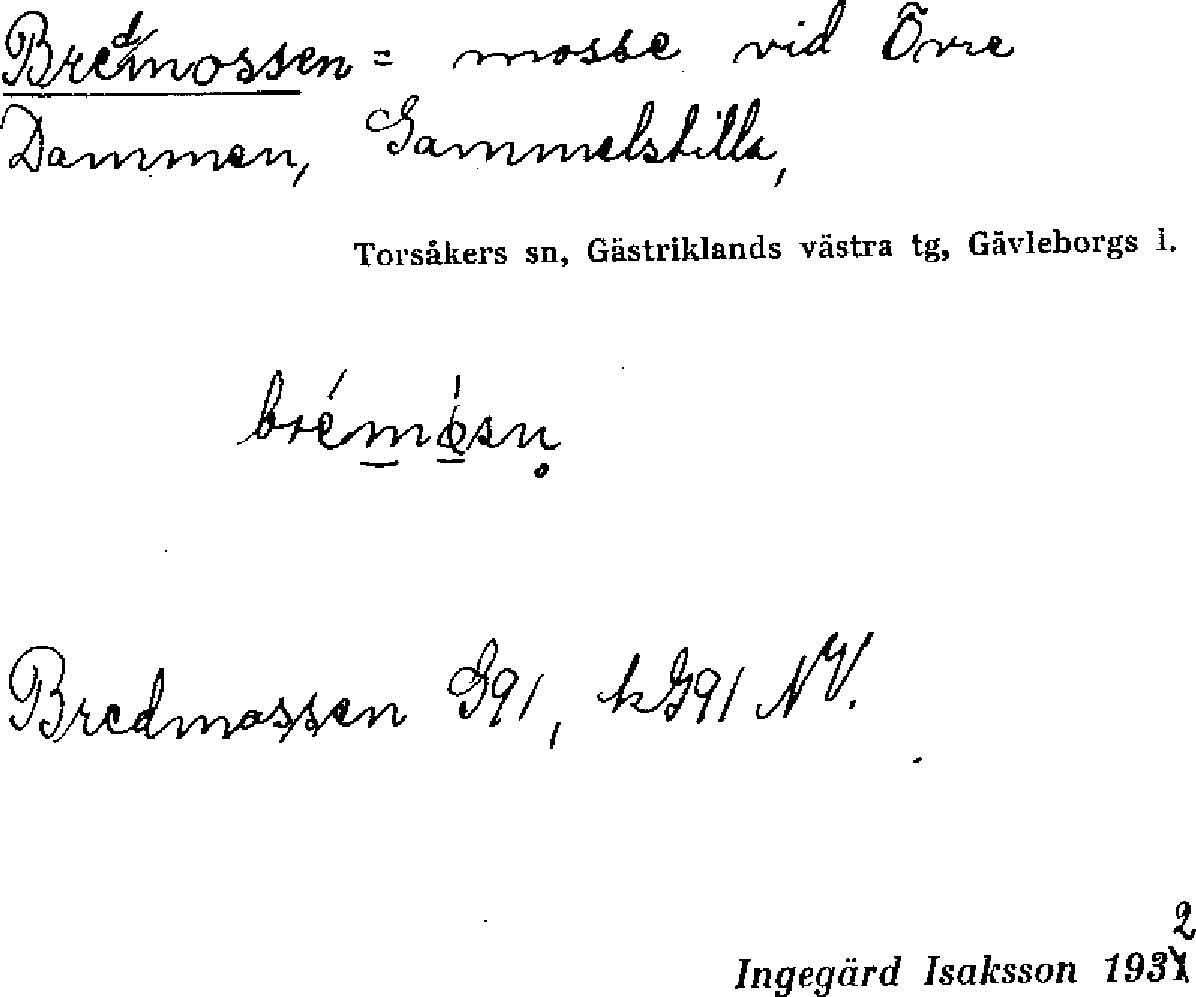 Bredmossen = mosse vid Övre
Dammen, Gammelstilla,
Torsåkers sn, Gästriklands västra tg, Gävleborgs l.
brémósn̥
Bredmossen G91, kG91 NV.
Ingegärd Isaksson 1932